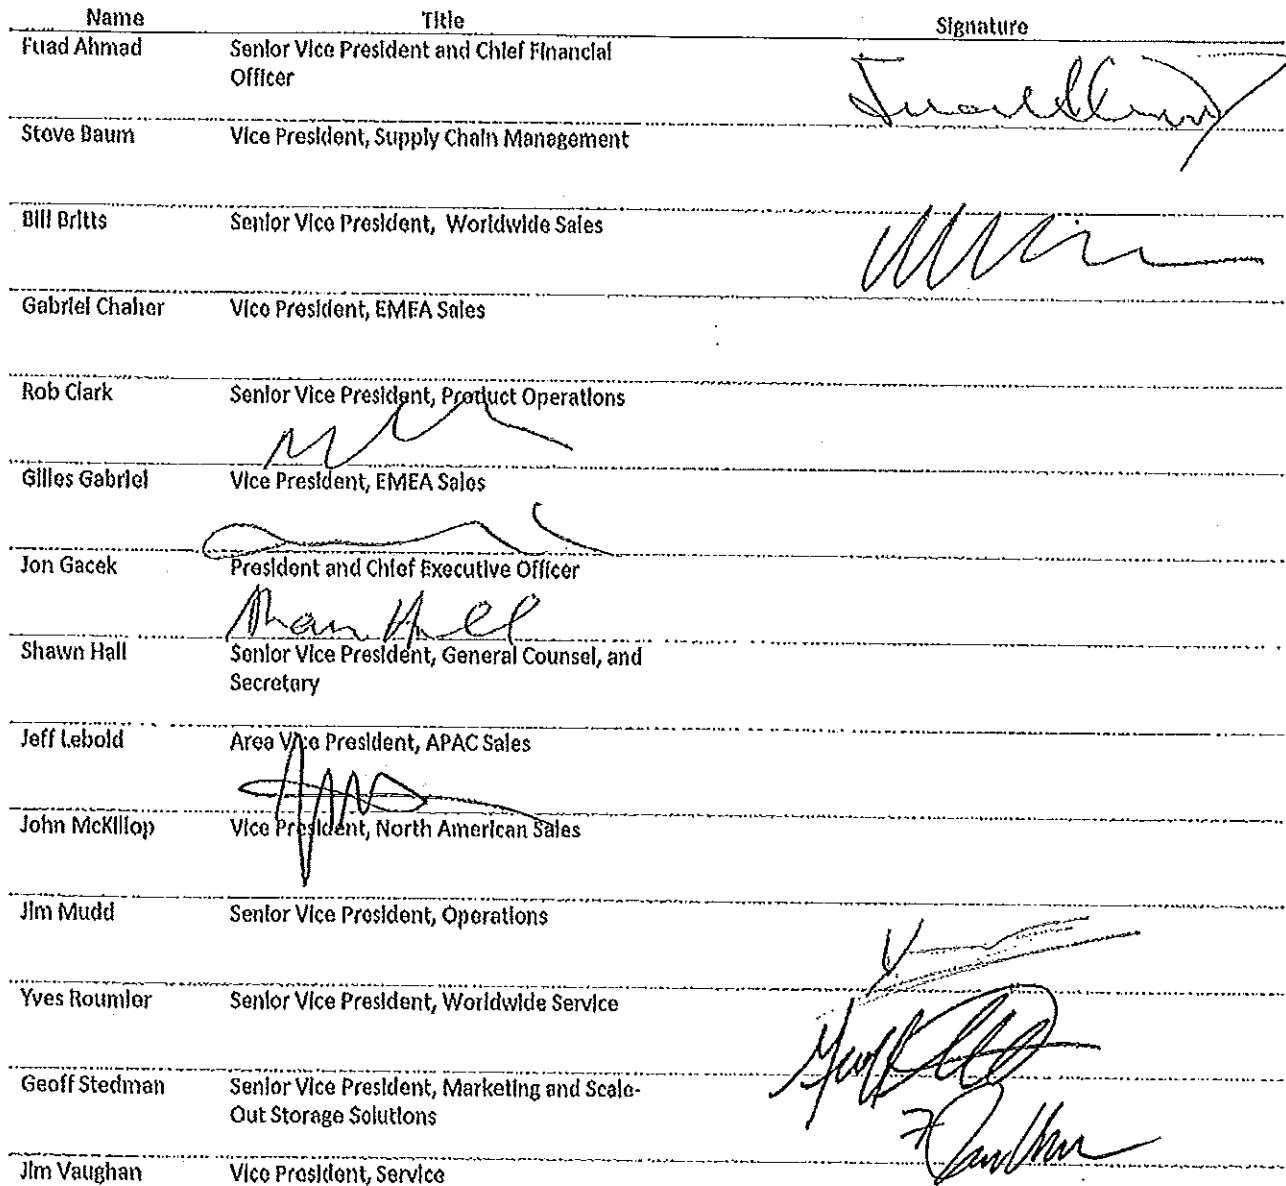 Name Title Signature
Fuad Ahmad Senior Vice President and Chief Financial
Officer
Steve Baum Vice President, Supply Chain Management
Bill Britts Senior Vice President, Worldwide Sales
Gabriel Chaher Vice President, EMEA Sales
Rob Clark Senior Vice President, Product Operations
Gilles Gabriel Vice President, EMEA Sales
Jon Gacek President and Chief Executive Officer
Shawn Hall
Shawn Hall Senior Vice President, General Counsel, and
Secretary
Jeff Lebold Area Vice President, APAC Sales
John McKillop Vice President, North American Sales
Jim Mudd Senior Vice President, Operations
Yves Roumier Senior Vice President, Worldwide Service
Geoff Stedman Senior Vice President, Marketing and Scale-
Out Storage Solutions
Jim Vaughan Vice President, Service